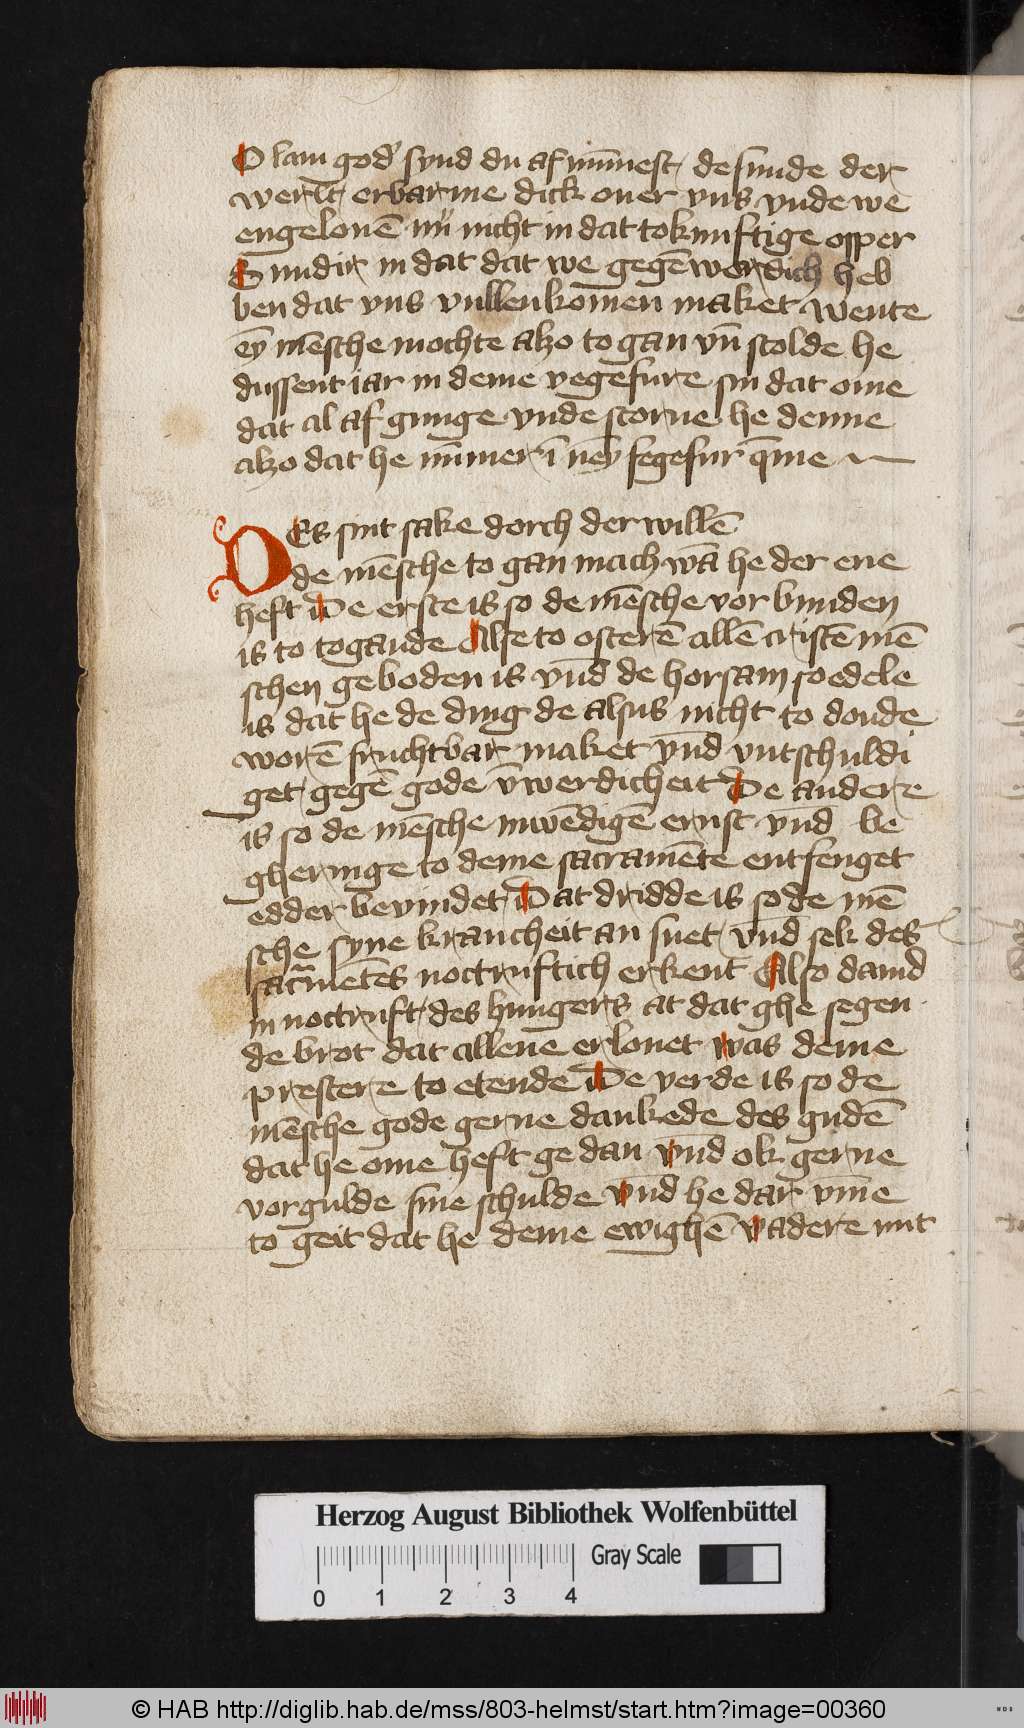 O lam god' synd du af nim̄est de sunde der
werlt erbarme dick ouer vns vnde we
engelouē nu nicht in dat tokunftige opper
Sundir in dat dat we gegēwerdich heb
ben dat vns vullenkomen maket wente
ey mēsche mochte alzo to gan vn̄ scolde he
dussent iar in deme vegefure sin dat ome
dat al af gunge vnde storue he denne
alzo dat he nūmer ī ney fegefur q̄me
Es sint sake dorch der willē
de mēsche to gan mach wā he der ene
heft De erste is so de mēsche vor bunden
is to togande Alse to osterē allē cristē mē
schen geboden is vnd de horsam so edele
is dat he de ding de alsus nicht to donde
worē fruchtbar maket vnd vntschuldi
get gegē gode v̄werdicheit De andere
is so de mēsche inwēdigē ernst vnd be
gheringe to deme sacramēte entfenget
edder bevindet Dat dridde is so de mē
sche syne krancheit an suet vnd sek des
sacr̄mētes noctruftich erkent Also dauid
in noctruft des hungers at dat ghe segen
de brot dat allene erlouet was deme
prestere to etende De verde is so de
mēsche gode gerne dankede des gudē
dat he ome heft ge dan vnd ok gerne
vorgulde sine schulde vnd he dar vm̄e
to geit dat he deme ewighē vadere mit
Herzog August Bibliothek Wolfenbüttel
Gray Scale
0 1 2 3 4
© HAB http://diglib.hab.de/mss/803-helmst/start.htm?image=00360